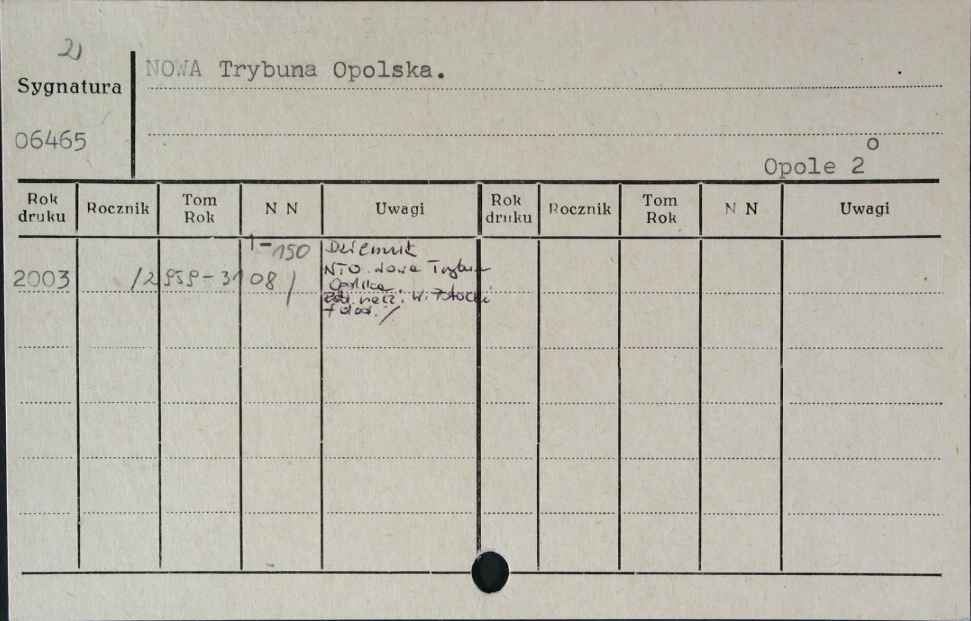 2)
Sygnatura
NOWA Trybuna Opolska.
06465
o
Opole 2
Rok druku Rocznik Tom Rok N N Uwagi Rok druku Rocznik Tom Rok N N Uwagi
1-150 Dziennik
2003 /2959-3108/ NTO. Nowa Trybuna
Opolska.
red. nacz. W. Potocki
+ dod. /